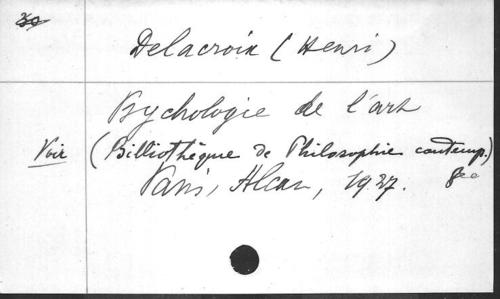 30
Delacroix (Henri)
Psychologie de l'art
Voir (Bibliothèque de Philosophie contemp.)
Paris, Alcan, 1927. 8º